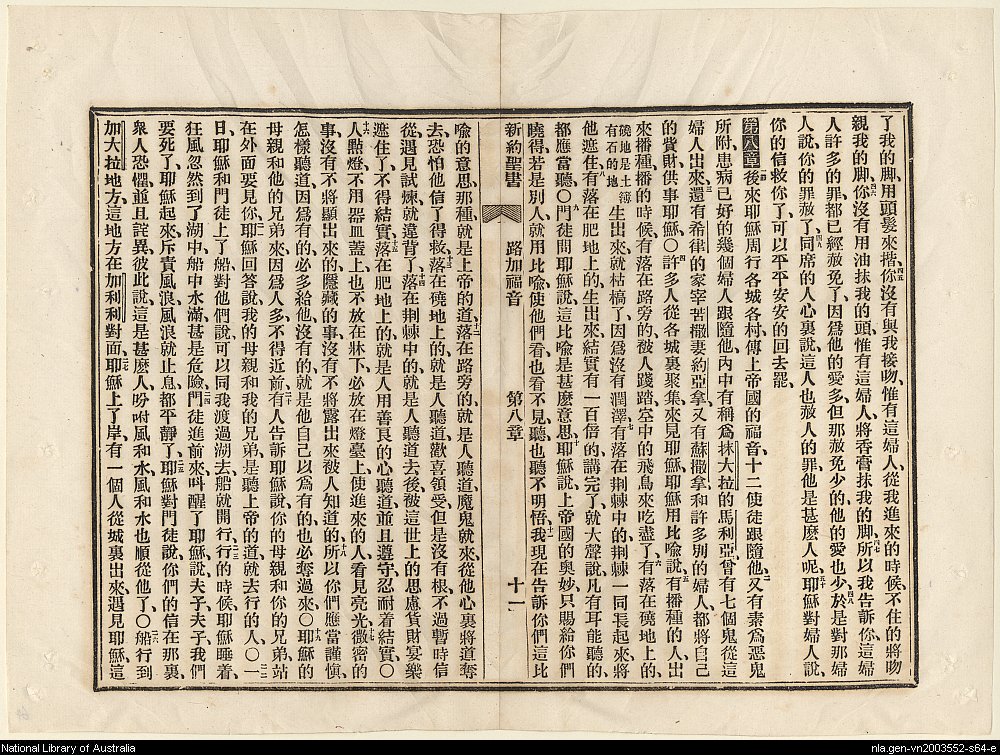 了我的脚、用頭髮來揩、你沒有與我接吻、惟有這婦人、從我進來的時候、不住的將吻
親我的脚、你沒有用油抹我的頭、惟有這婦人、將香膏抹我的脚、所以我告訴你、這婦
人許多的罪都已經赦免了、因爲他的愛多、但那赦免少的、他的愛也少、於是對那婦
人說、你的罪赦了、同席的人心裏說、這人也赦人的罪、他是甚麼人呢、耶穌對婦人說、
你的信救你了、可以平平安安的回去罷、
第八章 後來耶穌周行各城各村、傳上帝國的福音、十二使徒跟隨他、又有素爲惡鬼
所附、患病已好的幾個婦人跟隨他、內中有稱爲抹大拉的馬利亞、曾有七個鬼從這
婦人出來、還有希律的家宰苦撒妻約亞拿、又有蘇撒拿、和許多別的婦人、都將自己
的貲財供事耶穌、○許多人從各城裏聚集來見耶穌、耶穌用比喻說、有播種的人出
來播種、播的時候、有落在路旁的、被人踐踏、空中的飛鳥來吃盡了、有落在磽地上的、
磽地是土薄有石的地 生出來就枯槁了、因爲沒有潤澤、有落在荆棘中的、荆棘一同長起來、將
他遮住、有落在肥地上的、生出來結實有一百倍的、講完了、就大聲說、凡有耳能聽的、
都應當聽、○門徒問耶穌說、這比喻是甚麼意思、耶穌說、上帝國的奧妙、只賜給你們
曉得、若是別人、就用比喻、使他們看也看不見、聽也聽不明悟、我現在告訴你們這比
新約聖書 路加福音 第八章 十一
喻的意思、那種、就是上帝的道、落在路旁的、就是人聽道、魔鬼就來、從他心裏將道奪
去、恐怕他信了得救、落在磽地上的、就是人聽道、歡喜領受、但是沒有根、不過暫時信
從、遇見試煉就違背了、落在荆棘中的、就是人聽道去後、被這世上的思慮貨財宴樂
遮住了、不得結實、落在肥地上的、就是人用善良的心聽道、並且遵守、忍耐着結實、○
人點燈、不用器皿蓋上、也不放在牀下、必放在燈臺上、使進來的人、看見亮光、微密的
事、沒有不將顯出來的、隱藏的事、沒有不將露出來被人知道的、所以你們應當謹愼、
怎樣聽道、因爲有的、必多給他、沒有的、就是他自己以爲有的、也必奪過來、○耶穌的
母親和他的兄弟來、因爲人多、不得近前、有人告訴耶穌說、你的母親和你的兄弟、站
在外面要見你、耶穌回答說、我的母親和我的兄弟、是聽上帝的道、就去行的人、○一
日、耶穌和門徒上了船、對他們說、可以同我渡過湖去、船就開行、行的時候、耶穌睡着、
狂風忽然到了湖中、船中水滿、甚是危險、門徒進前來呌醒了耶穌說、夫子、夫子、我們
要死了、耶穌起來、斥責風浪、風浪就止息、都平靜了、耶穌對門徒說、你們的信在那裏、
衆人恐懼、並且詫異、彼此說、這是甚麼人、吩咐風和水、風和水也順從他了、○船行到
加大拉地方、這地方在加利利對面、耶穌上了岸、有一個人從城裏出來、遇見耶穌、這
National Library of Australia
nla.gen-vn2003552-s64-e